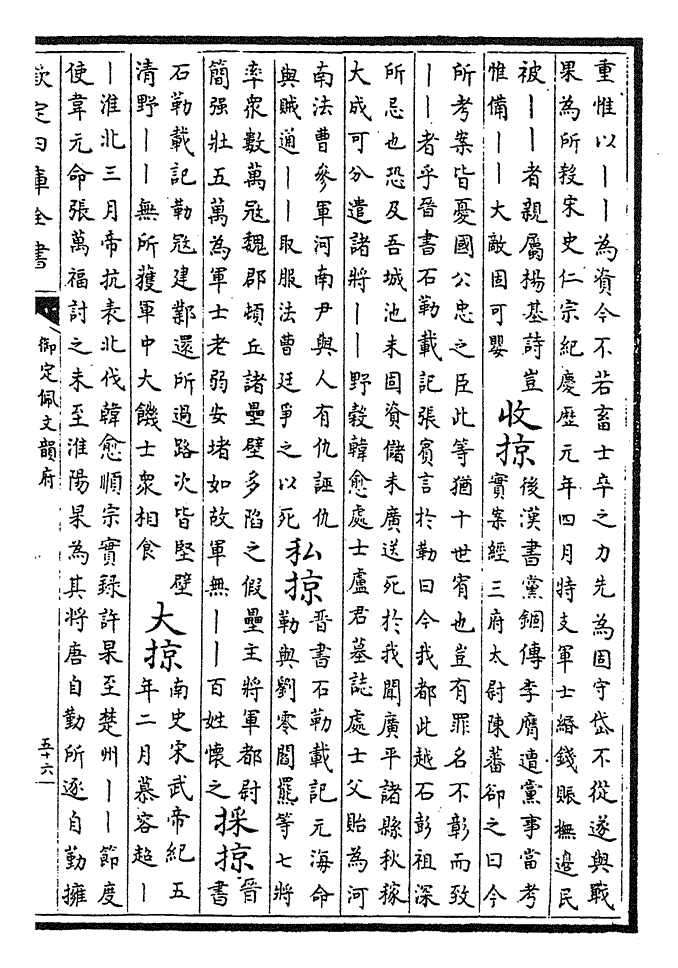 重惟以——為資今不若畜士卒之力先為固守岱不從遂與戰
果為所殺宋史仁宗紀慶歷元年四月特支軍士緡錢賑撫邊民
被——者親屬楊基詩豈
惟備——大敵固可嬰
收掠
後漢書黨錮傳李膺遭黨事當考
實案經三府太尉陳蕃卻之曰今
所考案皆憂國公忠之臣此等猶十世宥也豈有罪名不彰而致
——者乎晉書石勒載記張賓言於勒曰今我都此越石彭祖深
所忌也恐及吾城池未固資儲未廣送死於我聞廣平諸縣秋稼
大成可分遣諸將——野榖韓愈處士盧君墓誌處士父貽為河
南法曹參軍河南尹與人有仇誣仇
與賊通——取服法曹廷爭之以死
私掠
晉書石勒載記元海命
勒與劉零閻羆等七將
率衆數萬冦魏郡頓丘諸壘壁多陷之假壘主將軍都尉
簡强壯五萬為軍士老弱安堵如故軍無——百姓懷之
採掠
晉
書
石勒載記勒冦建鄴還所過路次皆堅壁
清野——無所獲軍中大饑士衆相食
大掠
南史宋武帝紀五
年二月慕容超—
—淮北三月帝抗表北伐韓愈順宗實録許杲至楚州——節度
使韋元命張萬福討之未至淮陽杲為其將唐自勤所逐自勤擁
欽定四庫全書
御定佩文韻府
五十六